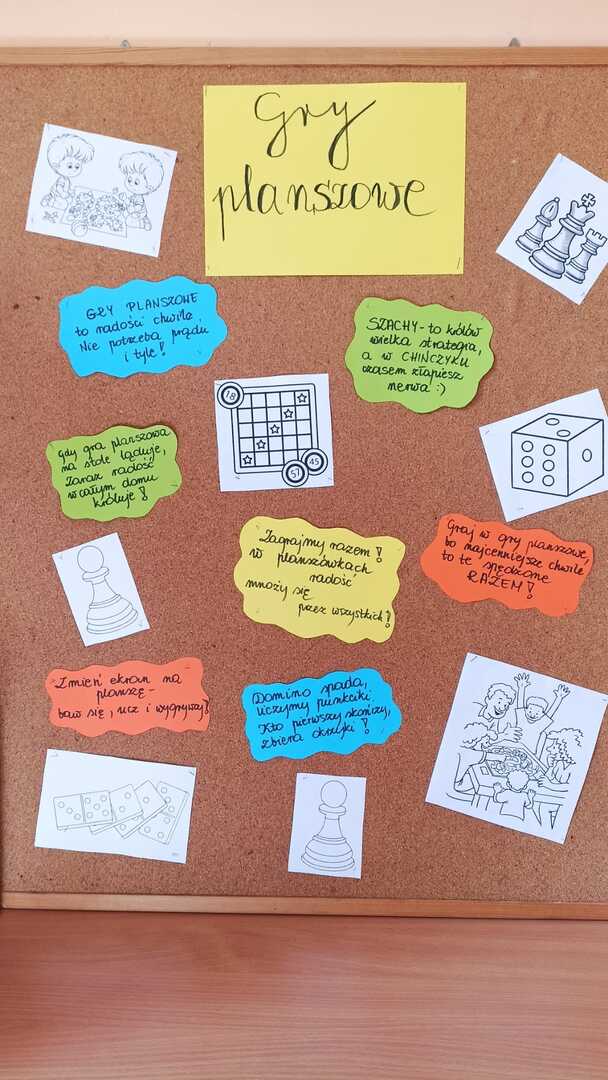 Gry
planszowe
GRY PLANSZOWE
to radości chwile,
Nie potrzeba prądu
i tyle!
SZACHY - to królów
wielka strategia,
a w CHIŃCZYKU
czasem złapiesz
nerwa :)
18
57
45
Gdy gra planszowa
na stole ląduje,
Zaraz radość
w całym domu
króluje!
Zagrajmy razem!
w planszówkach
radość
mnoży się
przez wszystkich!
Graj w gry planszowe,
bo najcenniejsze chwile,
to te spędzone
RAZEM!
Zmień ekran na
planszę-
baw się, ucz i wygrywaj!
Domino spada,
liczymy punkciki
Kto pierwszy skończy,
zbiera okrzyki!